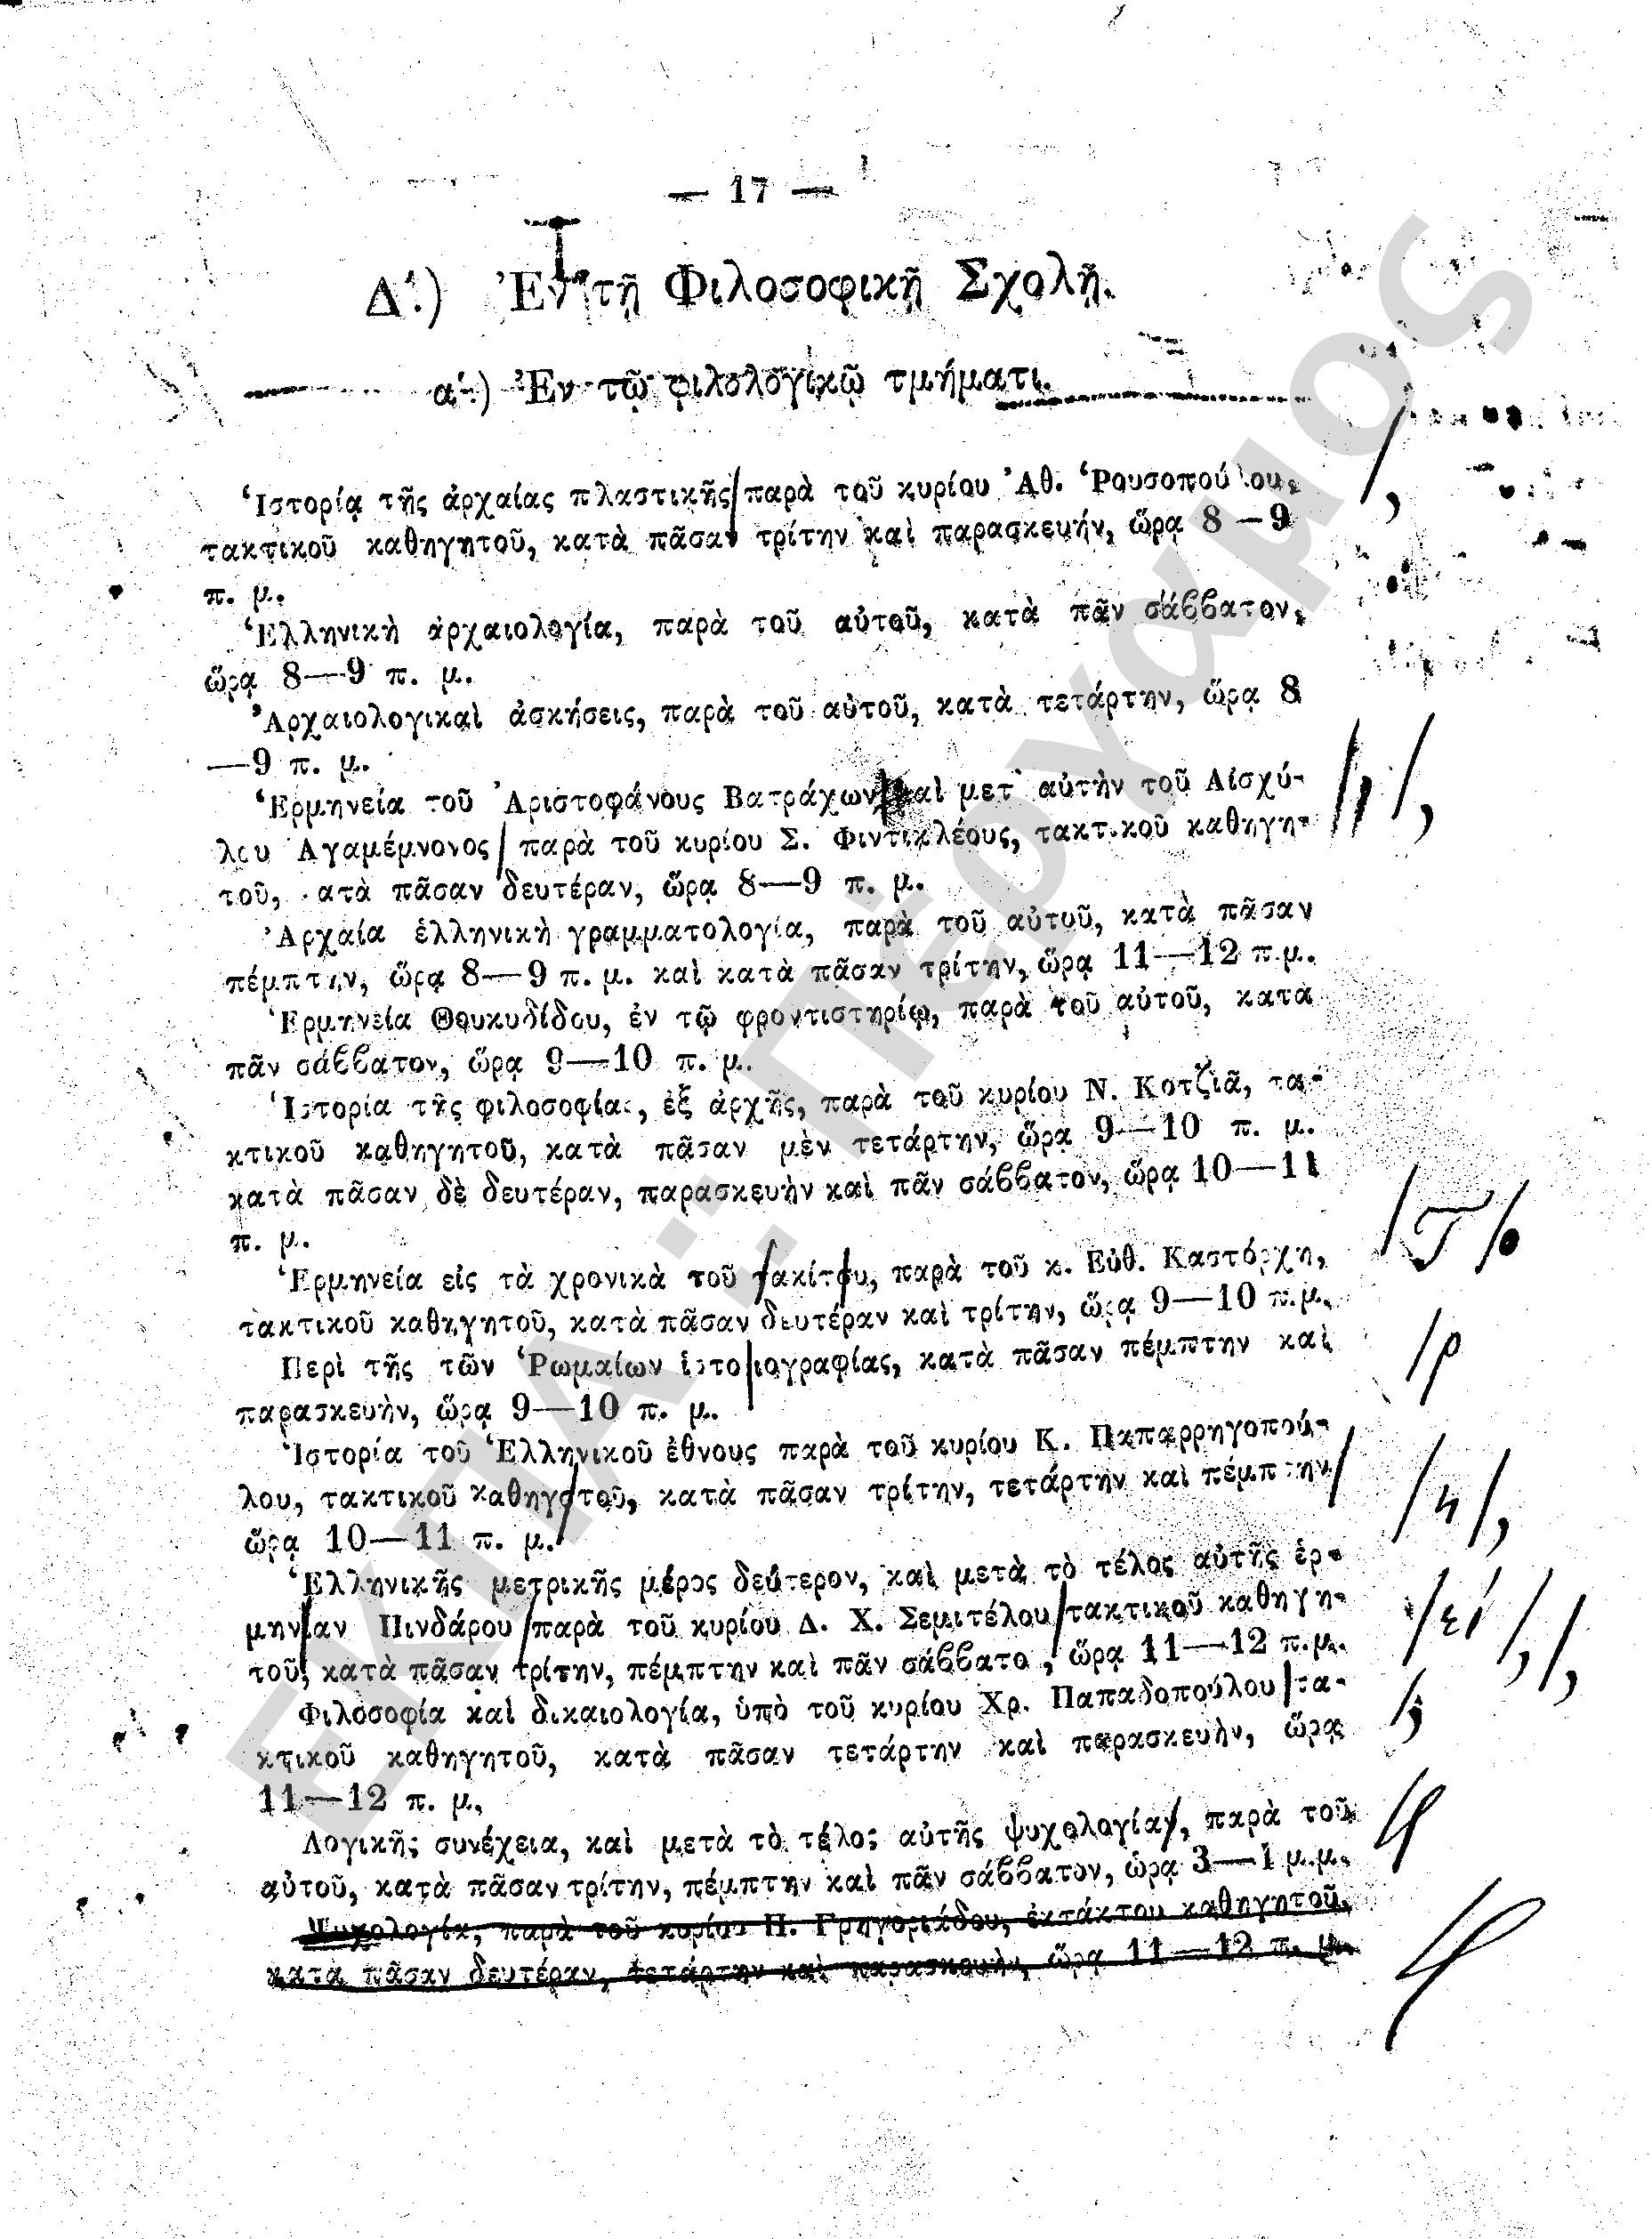 — 17 —
Δ΄.) Ἐν τῇ Φιλοσοφικῇ Σχολῇ.
α΄.) Ἐν τῷ φιλολογικῷ τμήματι.
Ἱστορίᾳ τῆς ἀρχαίας πλαστικῆς παρὰ τοῦ κυρίου Ἀθ. Ῥουσοπούλου,
τακτικοῦ καθηγητοῦ, κατὰ πᾶσαν τρίτην καὶ παρασκευήν, ὥρᾳ 8—9
π. μ.
Ἑλληνικὴ ἀρχαιολογία, παρὰ τοῦ αὐτοῦ, κατὰ πᾶν σάββατον,
ὥρᾳ 8—9 π. μ.
Ἀρχαιολογικαὶ ἀσκήσεις, παρὰ τοῦ αὐτοῦ, κατὰ τετάρτην, ὥρᾳ 8
—9 π. μ.
Ἑρμηνεία τοῦ Ἀριστοφάνους Βατράχων καὶ μετ' αὐτὴν τοῦ Αἰσχύ-
λου Ἀγαμέμνονος παρὰ τοῦ κυρίου Σ. Φιντικλέους, τακτικοῦ καθηγη-
τοῦ, κατὰ πᾶσαν δευτέραν, ὥρᾳ 8—9 π. μ.
Ἀρχαία ἑλληνικὴ γραμματολογία, παρὰ τοῦ αὐτοῦ, κατὰ πᾶσαν
πέμπτην, ὥρᾳ 8—9 π. μ. καὶ κατὰ πᾶσαν τρίτην, ὥρᾳ 11—12 π.μ.
Ἑρμηνεία Θουκυδίδου, ἐν τῷ φροντιστηρίῳ, παρὰ τοῦ αὐτοῦ, κατὰ
πᾶν σάββατον, ὥρᾳ 9—10 π. μ.
Ἱστορία τῆς φιλοσοφίας, ἐξ ἀρχῆς, παρὰ τοῦ κυρίου Ν. Κοτζιᾶ, τα-
κτικοῦ καθηγητοῦ, κατὰ πᾶσαν μὲν τετάρτην, ὥρᾳ 9—10 π. μ.
κατὰ πᾶσαν δὲ δευτέραν, παρασκευὴν καὶ πᾶν σάββατον, ὥρᾳ 10—11
π. μ.
Ἑρμηνεία εἰς τὰ χρονικὰ τοῦ τακίτου, παρὰ τοῦ κ. Εὐθ. Καστόρχη,
τακτικοῦ καθηγητοῦ, κατὰ πᾶσαν δευτέραν καὶ τρίτην, ὥρᾳ 9—10 π.μ.
Περὶ τῆς τῶν Ῥωμαίων ἱστοριογραφίας, κατὰ πᾶσαν πέμπτην καὶ
παρασκευὴν, ὥρᾳ 9—10 π. μ.
Ἱστορία τοῦ Ἑλληνικοῦ ἔθνους παρὰ τοῦ κυρίου Κ. Παπαρρηγοπού-
λου, τακτικοῦ καθηγοτοῦ, κατὰ πᾶσαν τρίτην, τετάρτην καὶ πέμπτην
ὥρᾳ 10—11 π. μ.
Ἑλληνικῆς μετρικῆς μέρος δεύτερον, καὶ μετὰ τὸ τέλος αὐτῆς ἑρ-
μηνίαν Πινδάρου παρὰ τοῦ κυρίου Δ. Χ. Σεμιτέλου τακτικοῦ καθηγη-
τοῦ, κατὰ πᾶσαν τρίτην, πέμπτην καὶ πᾶν σάββατο , ὥρᾳ 11—12 π.μ.
Φιλοσοφία καὶ δικαιολογία, ὑπὸ τοῦ κυρίου Χρ. Παπαδοπούλου τα-
κτικοῦ καθηγητοῦ, κατὰ πᾶσαν τετάρτην καὶ παρασκευὴν, ὥρᾳ
11—12 π. μ,
Λογικῆς συνέχεια, καὶ μετὰ τὸ τέλος αὐτῆς ψυχολογίας, παρὰ τοῦ
αὐτοῦ, κατὰ πᾶσαν τρίτην, πέμπτην καὶ πᾶν σάββατον, ὥρᾳ 3—4 μ.μ.
Ψυχολογία, παρὰ τοῦ κυρίου Π. Γρηγοριάδου, ἐκτάκτου καθηγητοῦ,
κατὰ πᾶσαν δευτέραν, τετάρτην καὶ παρασκευὴν, ὥρᾳ 11—12 π. μ.